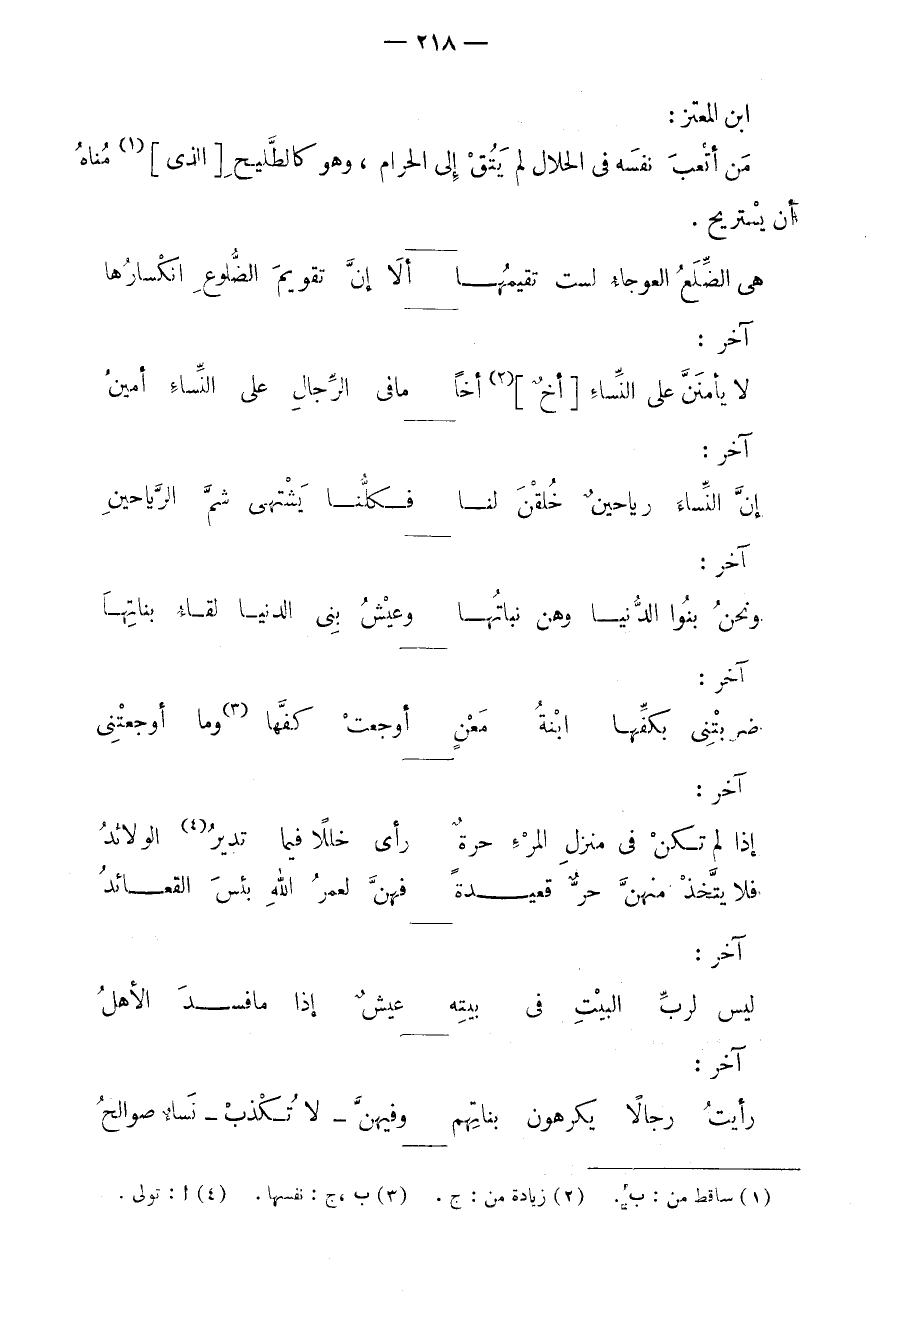 — ٢١٨ —
ابن المعتز :
مَن أتْعبَ نفسَه فى الحلال لم يَتُقْ إلى الحرام ، وهو كالطَّليحِ [ الذى ] (١) مُناهُ
أن يسْتريح .
هى الضِّلَعُ العوجاء لست تقيمُهـــا ألَا إنَّ تقويمَ الضُّلوعِ انكْسارُها
آخر :
لا يأمنَنَّ على النِّساءِ [ أخٌ ] (٢) أخاً مافى الرِّجالِ على النِّساءِ أمينُ
آخر :
إنَّ النِّساءَ رياحينٌ خُلقْنَ لنــا فــكلُّنــا يَشْتهى شمَّ الرَّياحينِ
آخر :
ونحنُ بنُوا الدُّنيــا وهن نباتُهــا وعيْشُ بِنى الدنيــا لقــاء بناتِهــا
آخر :
ضربتْنِى بكفِّهــا ابْنةُ مَعْنٍ أوجعتْ كفَّها (٣) وما أوجعتْنِى
آخر :
إذا لم تــكنْ فى منزلِ المرْءِ حرةٌ رأى خللًا فيما تديرُ (٤) الولائدُ
فلا يتَّخذْ منهنَّ حرٌّ قعيــــدةً فهنَّ لعمرُ اللهِ بئسَ القعــــائدُ
آخر :
ليس لربِّ البيْتِ فى بيتِه عيشٌ إذا مافســــدَ الأهلُ
آخر :
رأيتُ رجالًا يكرهون بناتِهم وفيهنَّ ــ لا تُــكْذبْ ــ نَساء صوالحُ
(١) ساقط من : ب . (٢) زيادة من : ج . (٣) ب ، ج : نفسها . (٤) ا : تولى .